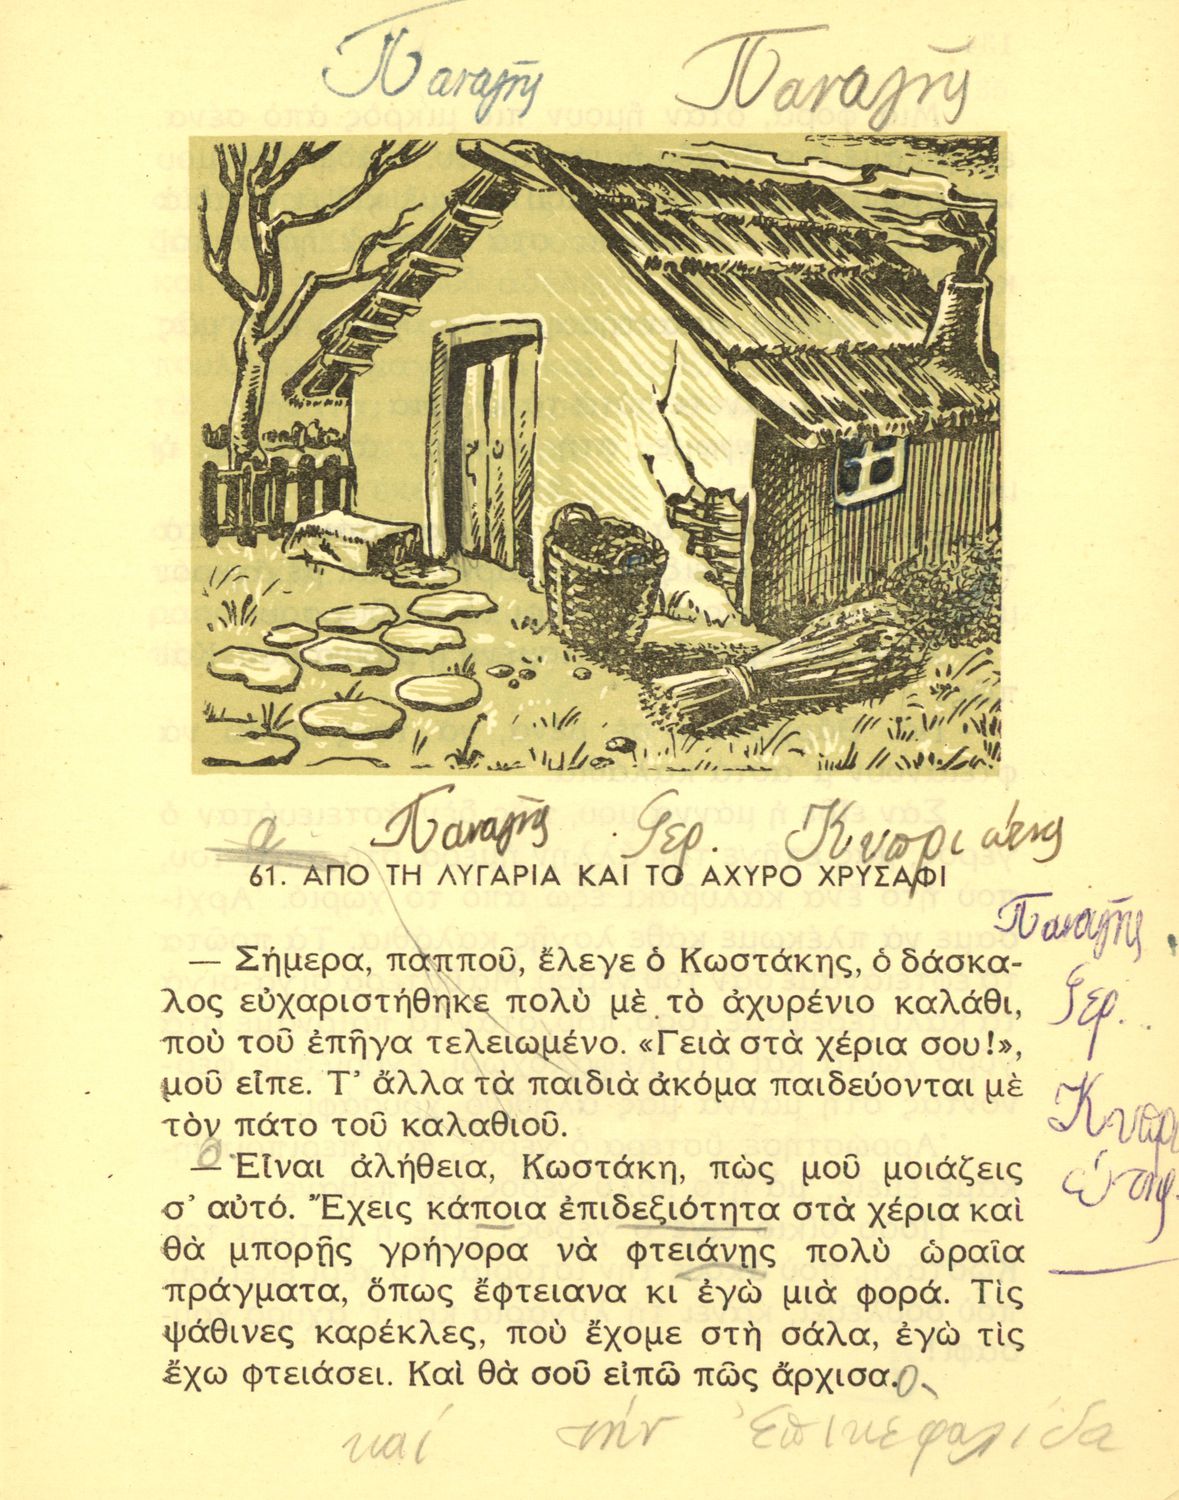 Παναγῆς Παναγῆς
α Παναγῆς Γερ. Κυπριώτης
61. ΑΠΟ ΤΗ ΛΥΓΑΡΙΑ ΚΑΙ ΤΟ ΑΧΥΡΟ ΧΡΥΣΑΦΙ
Παναγῆς
Γερ.
— Σήμερα, παπποῦ, ἔλεγε ὁ Κωστάκης, ὁ δάσκα-
λος εὐχαριστήθηκε πολὺ μὲ τὸ ἀχυρένιο καλάθι,
ποὺ τοῦ ἐπῆγα τελειωμένο. «Γειὰ στὰ χέρια σου!»,
μοῦ εἶπε. Τ’ ἄλλα τὰ παιδιὰ ἀκόμα παιδεύονται μὲ
τὸν πάτο τοῦ καλαθιοῦ.
— Εἶναι ἀλήθεια, Κωστάκη, πὼς μοῦ μοιάζεις
σ’ αὐτό. Ἔχεις κάποια ἐπιδεξιότητα στὰ χέρια καὶ
θὰ μπορῇς γρήγορα νὰ φτειάνῃς πολὺ ὡραῖα
πράγματα, ὅπως ἔφτειανα κι ἐγὼ μιὰ φορά. Τὶς
ψάθινες καρέκλες, ποὺ ἔχομε στὴ σάλα, ἐγὼ τὶς
ἔχω φτειάσει. Καὶ θὰ σοῦ εἰπῶ πῶς ἄρχισα.
καί τήν Ἐπικεφαλίδα